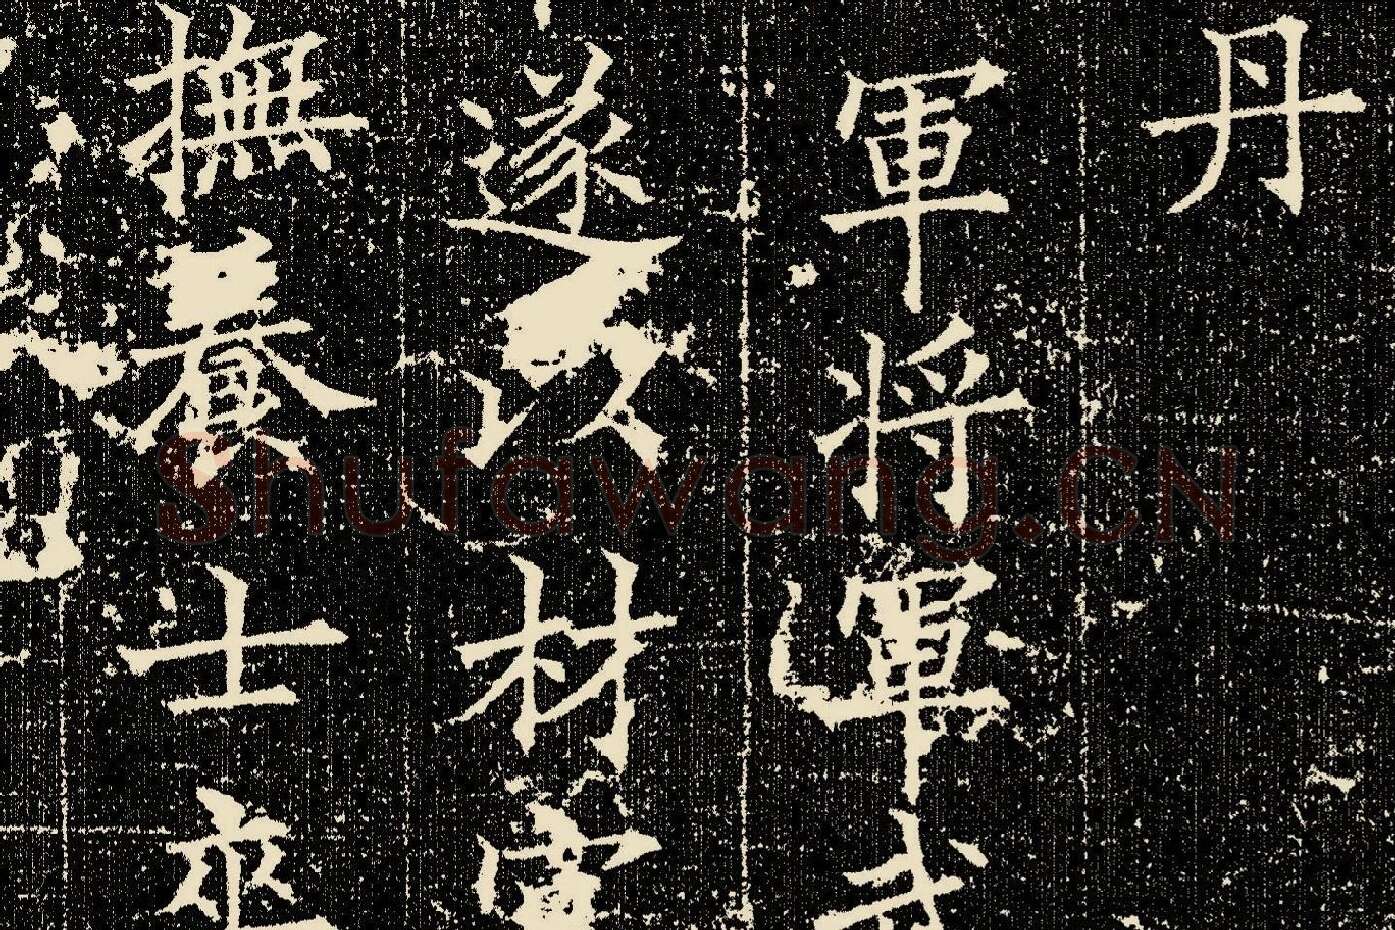 丹
軍將軍武
遂以材
撫養士卒
Shufawang.CN